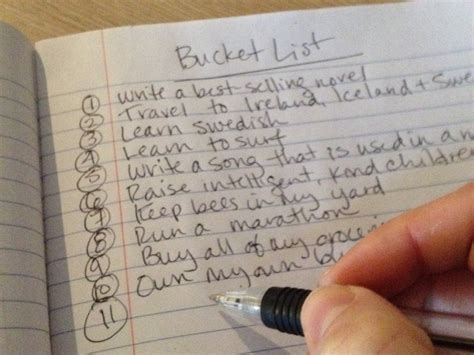 Bucket List
1 Write a best selling novel
2 Travel to Ireland, Iceland + Swe
3 Learn Swedish
4 Learn to surf
5 Write a song that is used in a
6 Raise intelligent, kind children
7 Keep bees in my yard
8 Run a marathon
9 Buy all of my groceri
10 Own my own bu
11